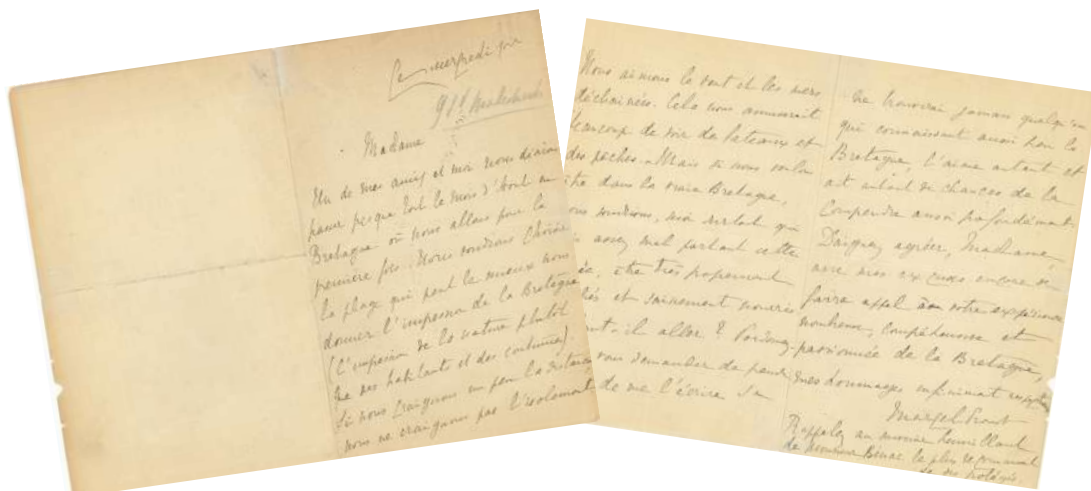 Ce mercredi soir
9 Bd Malesherbes
Madame
Un de mes amis et moi nous désirions
passer presque tout le mois d'Août en
Bretagne où nous allons pour la
première fois. Nous voudrions choisir
la plage qui peut le mieux nous
donner l'impression de la Bretagne
(l'impression de la nature plutôt
que des habitants et des coutumes).
Si nous craignons un peu la distance
nous ne craignons pas l'isolement
Nous aimons le vent et les mers
déchaînées. Cela nous amuserait
beaucoup de voir des bateaux et
des pêches. Mais si nous voulons
être dans la vraie Bretagne,
nous voudrions, moi surtout qui
assez mal portant cette
ée, être très proprement
és et sainement nourris
ut-il aller ? Pardonnez-
vous demander de prendre
de me l'écrire. Je
ne trouverai jamais quelqu'un
qui connaissant aussi bien la
Bretagne, l'aime autant et
ait autant de chances de la
comprendre aussi profondément.
Daignez agréer, Madame,
avec mes excuses encore de
faire appel à votre expérience
nombreuse, compréhensive et
passionnée de la Bretagne,
mes hommages infiniment respectueux
Marcel Proust
Rappelez au monsieur
de monsieur Binac le plus reconnaissant
de ses protégés.